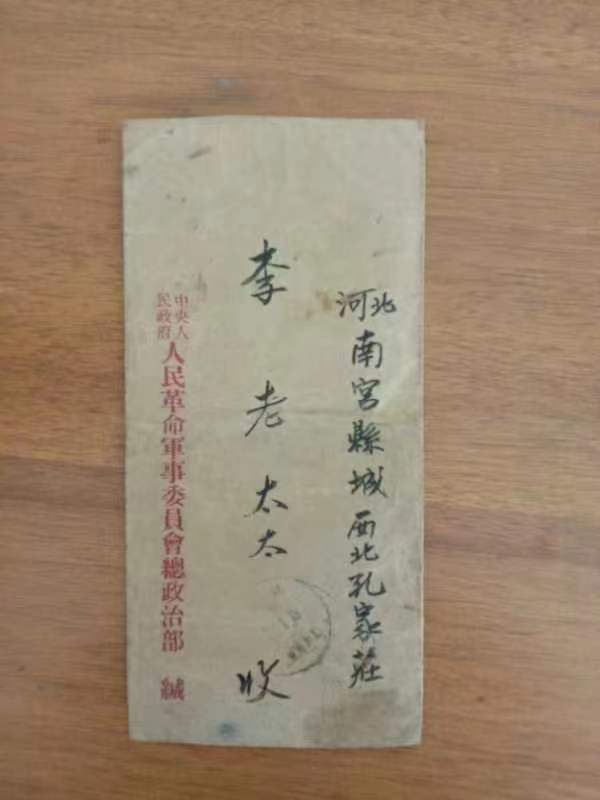 河北
南宮縣城西北孔家莊
李老太太 收
中央人
民政府
人民革命軍事委員會總政治部 緘